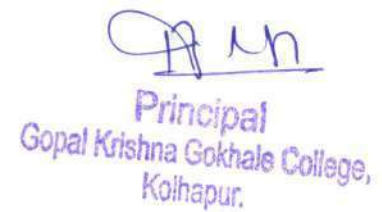 Principal
Gopal Krishna Gokhale College,
Kolhapur.